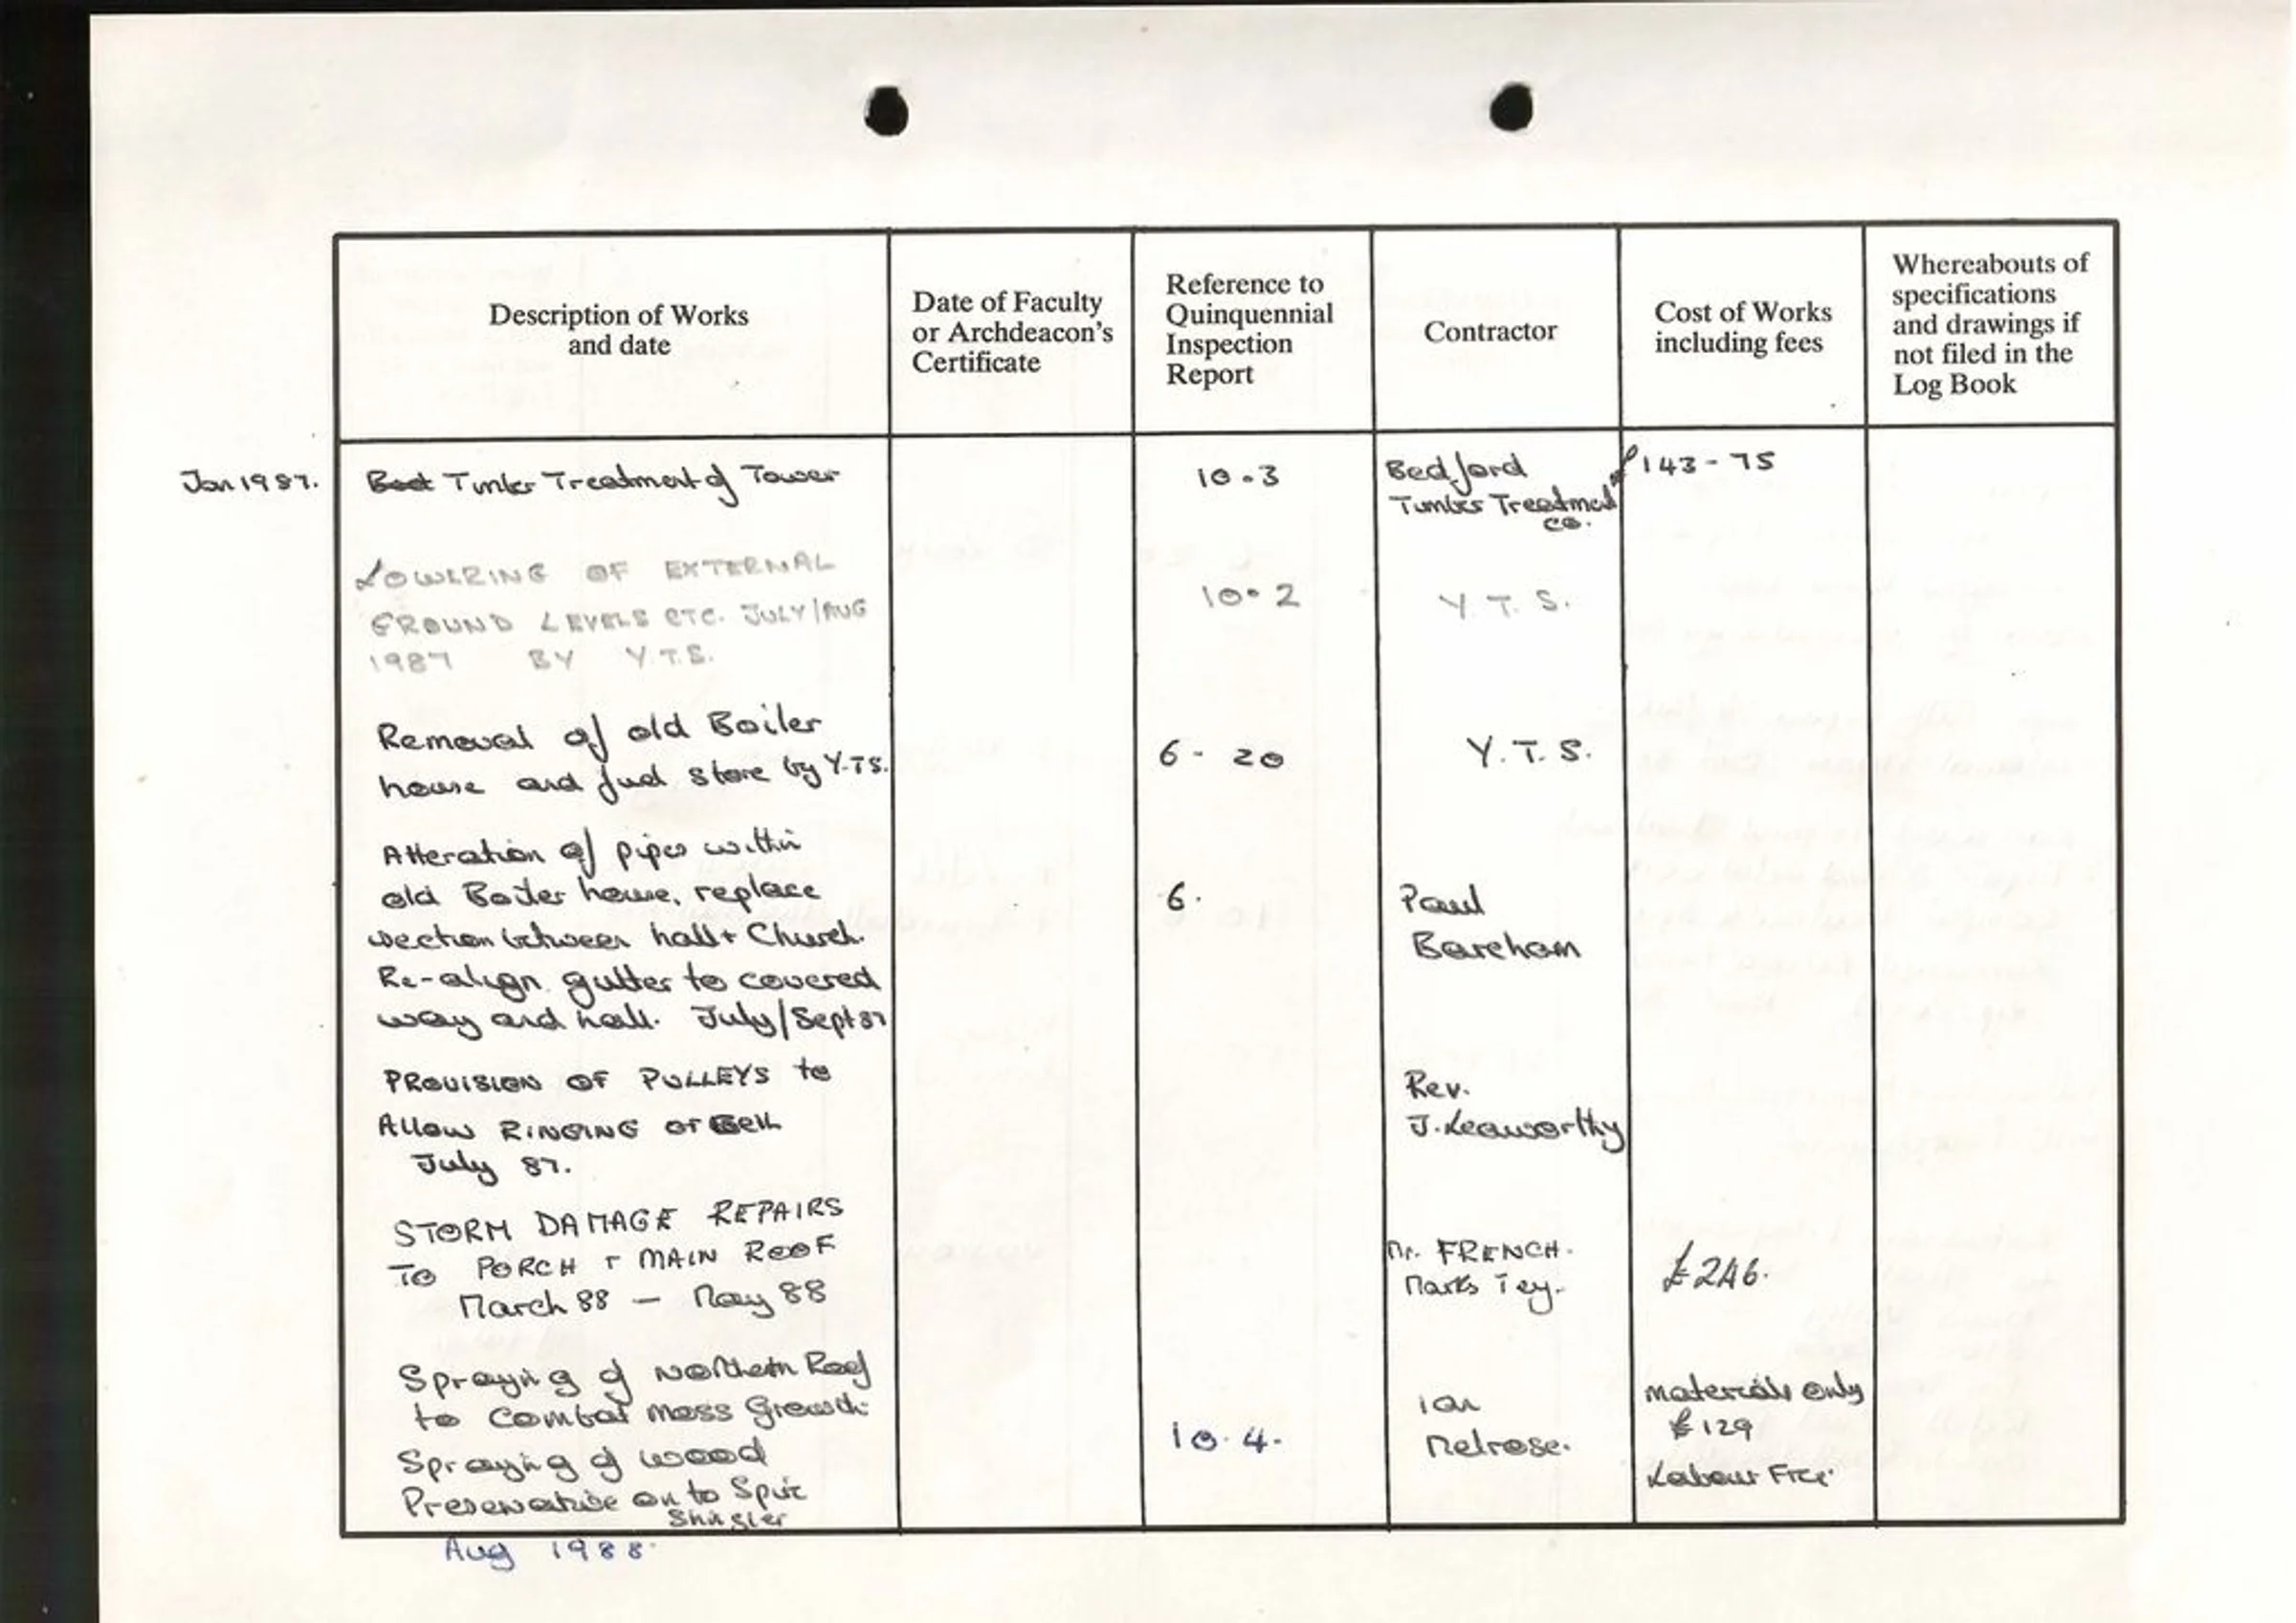 Description of Works
and date
Date of Faculty
or Archdeacon's
Certificate
Reference to
Quinquennial
Inspection
Report
Contractor
Cost of Works
including fees
Whereabouts of
specifications
and drawings if
not filed in the
Log Book
Jan 1987. Timber Treatment of Tower 10.3 Bedford £143-75
Timber Treatment
Co.
LOWERING OF EXTERNAL
GROUND LEVELS ETC. JULY/AUG 10.2 Y.T.S.
1987 BY Y.T.S.
Removal of old Boiler
house and fuel store by Y.T.S. 6-20 Y.T.S.
Alteration of pipes within
old Boiler house, replace 6. Paul
section between hall + Church. Bareham
Re-align gutter to covered
way and hall. July/Sept 87
PROVISION OF PULLEYS to Rev.
Allow RINGING OF Bell J. Kenworthy
July 87.
STORM DAMAGE REPAIRS
TO PORCH + MAIN ROOF Mr. FRENCH. £246.
March 88 — May 88 Marks Tey.
Spraying of Northern Roof materials only
to combat moss Growth. Ian £129
Spraying of wood 10.4. Melrose. Labour Free.
Preservative on to Spire
Shingles
Aug 1988.